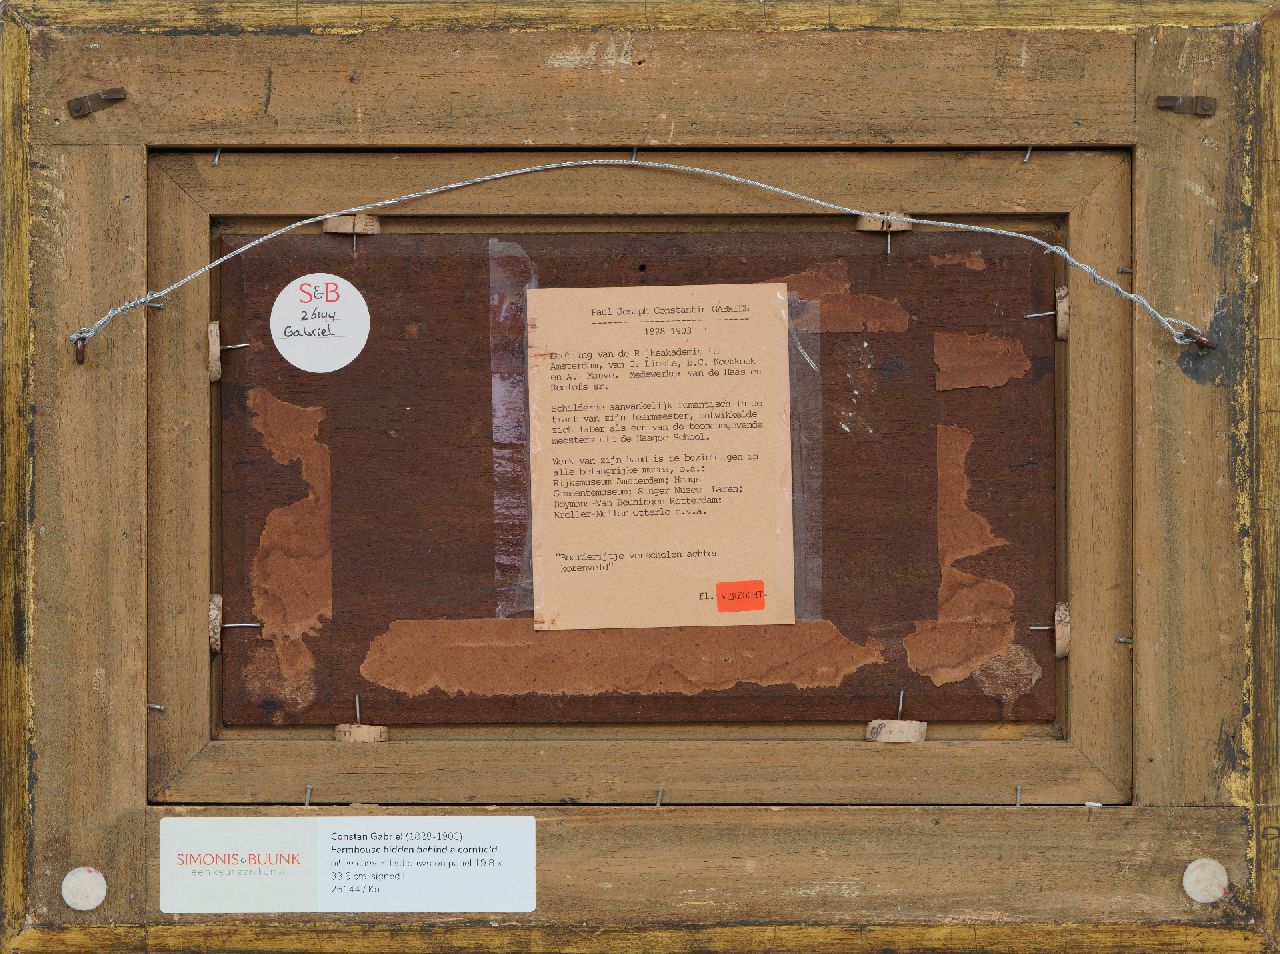 S&B
26144
Gabriel
Paul Joseph Constantin GABRIEL
1828-1903
Leerling van de Rijksakademie in
Amsterdam, van C. Lieste, B.C. Koekkoek
en A. Mauve. Medewerker van de Haas en
Roelofs sr.
Schilderde aanvankelijk romantisch in de
trant van zijn leermeester, ontwikkelde
zich later als een van de toonaangevende
meesters uit de Haagse School.
Werk van zijn hand is te bezichtigen in
alle belangrijke musea, o.a.:
Rijksmuseum Amsterdam; Haags
Gemeentemuseum; Singer Museum Laren;
Boymans-Van Beuningen Rotterdam;
Kröller-Müller Otterlo e.v.a.
"Boerderijtje verscholen achter
korenveld"
fl. VERKOCHT
SIMONIS&BUUNK
een keur aan kunst
Constan Gabriel (1828-1903)
Farmhouse hidden behind a cornfield
oil on canvas laid down on panel 19.8 x
33.3 cm, signed l
26144 / Ko